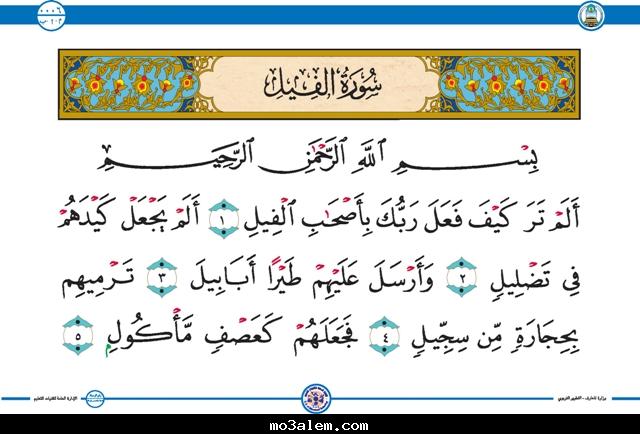 سُورَةُ الفِيلِ
بِسْمِ ٱللَّهِ ٱلرَّحْمَٰنِ ٱلرَّحِيمِ
أَلَمْ تَرَ كَيْفَ فَعَلَ رَبُّكَ بِأَصْحَٰبِ ٱلْفِيلِ ١ أَلَمْ يَجْعَلْ كَيْدَهُمْ
فِي تَضْلِيلٍ ٢ وَأَرْسَلَ عَلَيْهِمْ طَيْرًا أَبَابِيلَ ٣ تَرْمِيهِم
بِحِجَارَةٍ مِّن سِجِّيلٍ ٤ فَجَعَلَهُمْ كَعَصْفٍ مَّأْكُولٍ ٥
وزارة المعارف - التطوير التربوي
الإدارة العامة لتقنيات التعليم
mo3alem.com